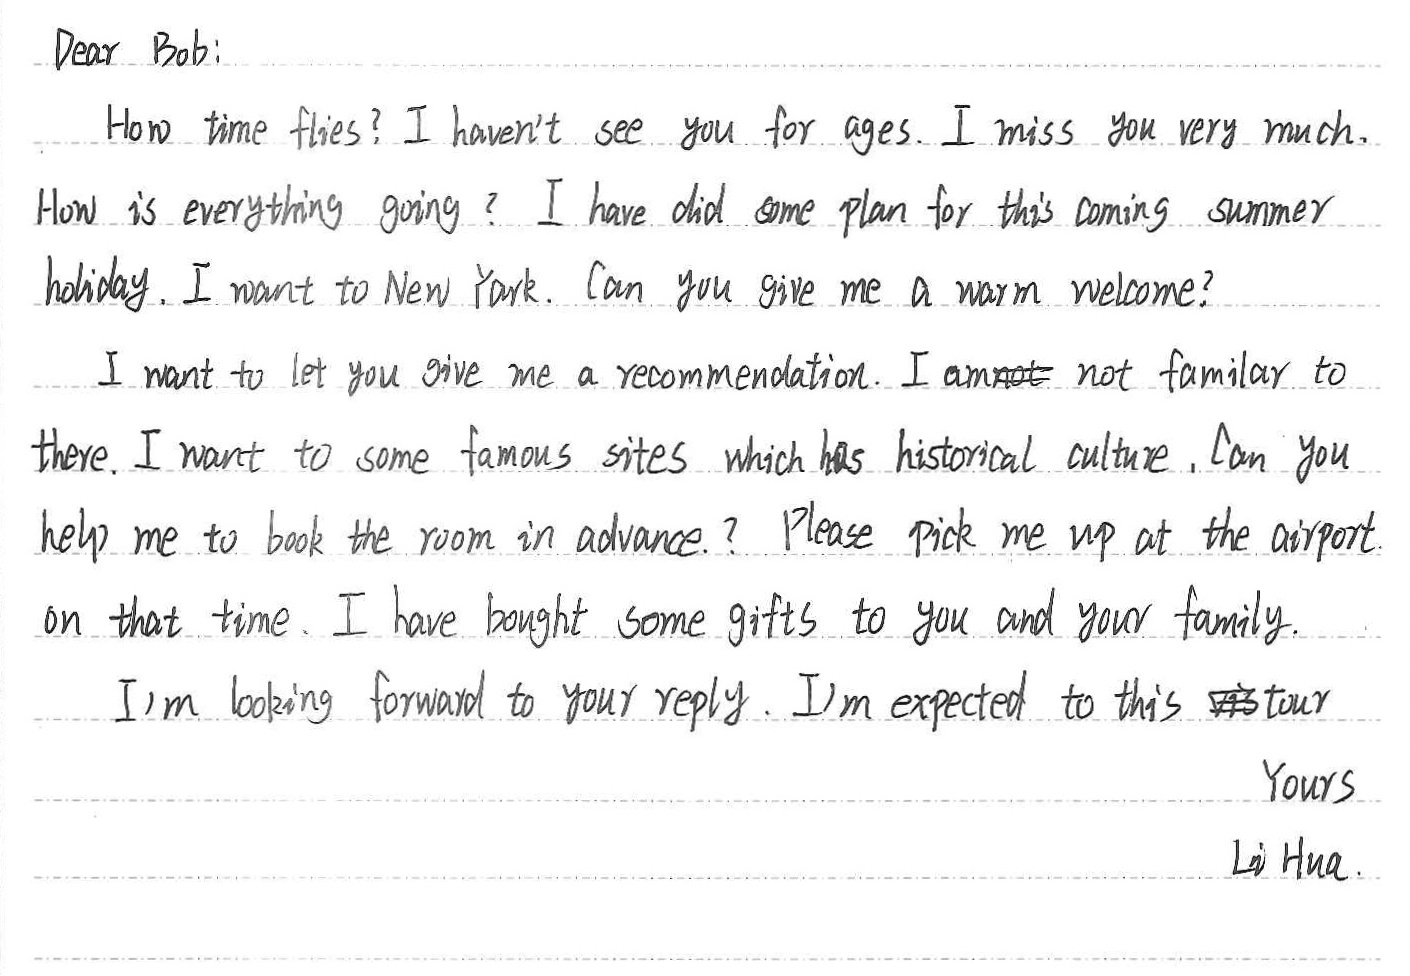 Dear Bob:
How time flies? I haven't see you for ages. I miss you very much.
How is everything going? I have did some plan for this coming summer
holiday. I want to New York. Can you give me a warm welcome?
I want to let you give me a recommendation. I am not familar to
there. I want to some famous sites which has historical culture. Can you
help me to book the room in advance.? Please pick me up at the airport
on that time. I have bought some gifts to you and your family.
I'm looking forward to your reply. I'm expected to this tour
Yours
Li Hua.